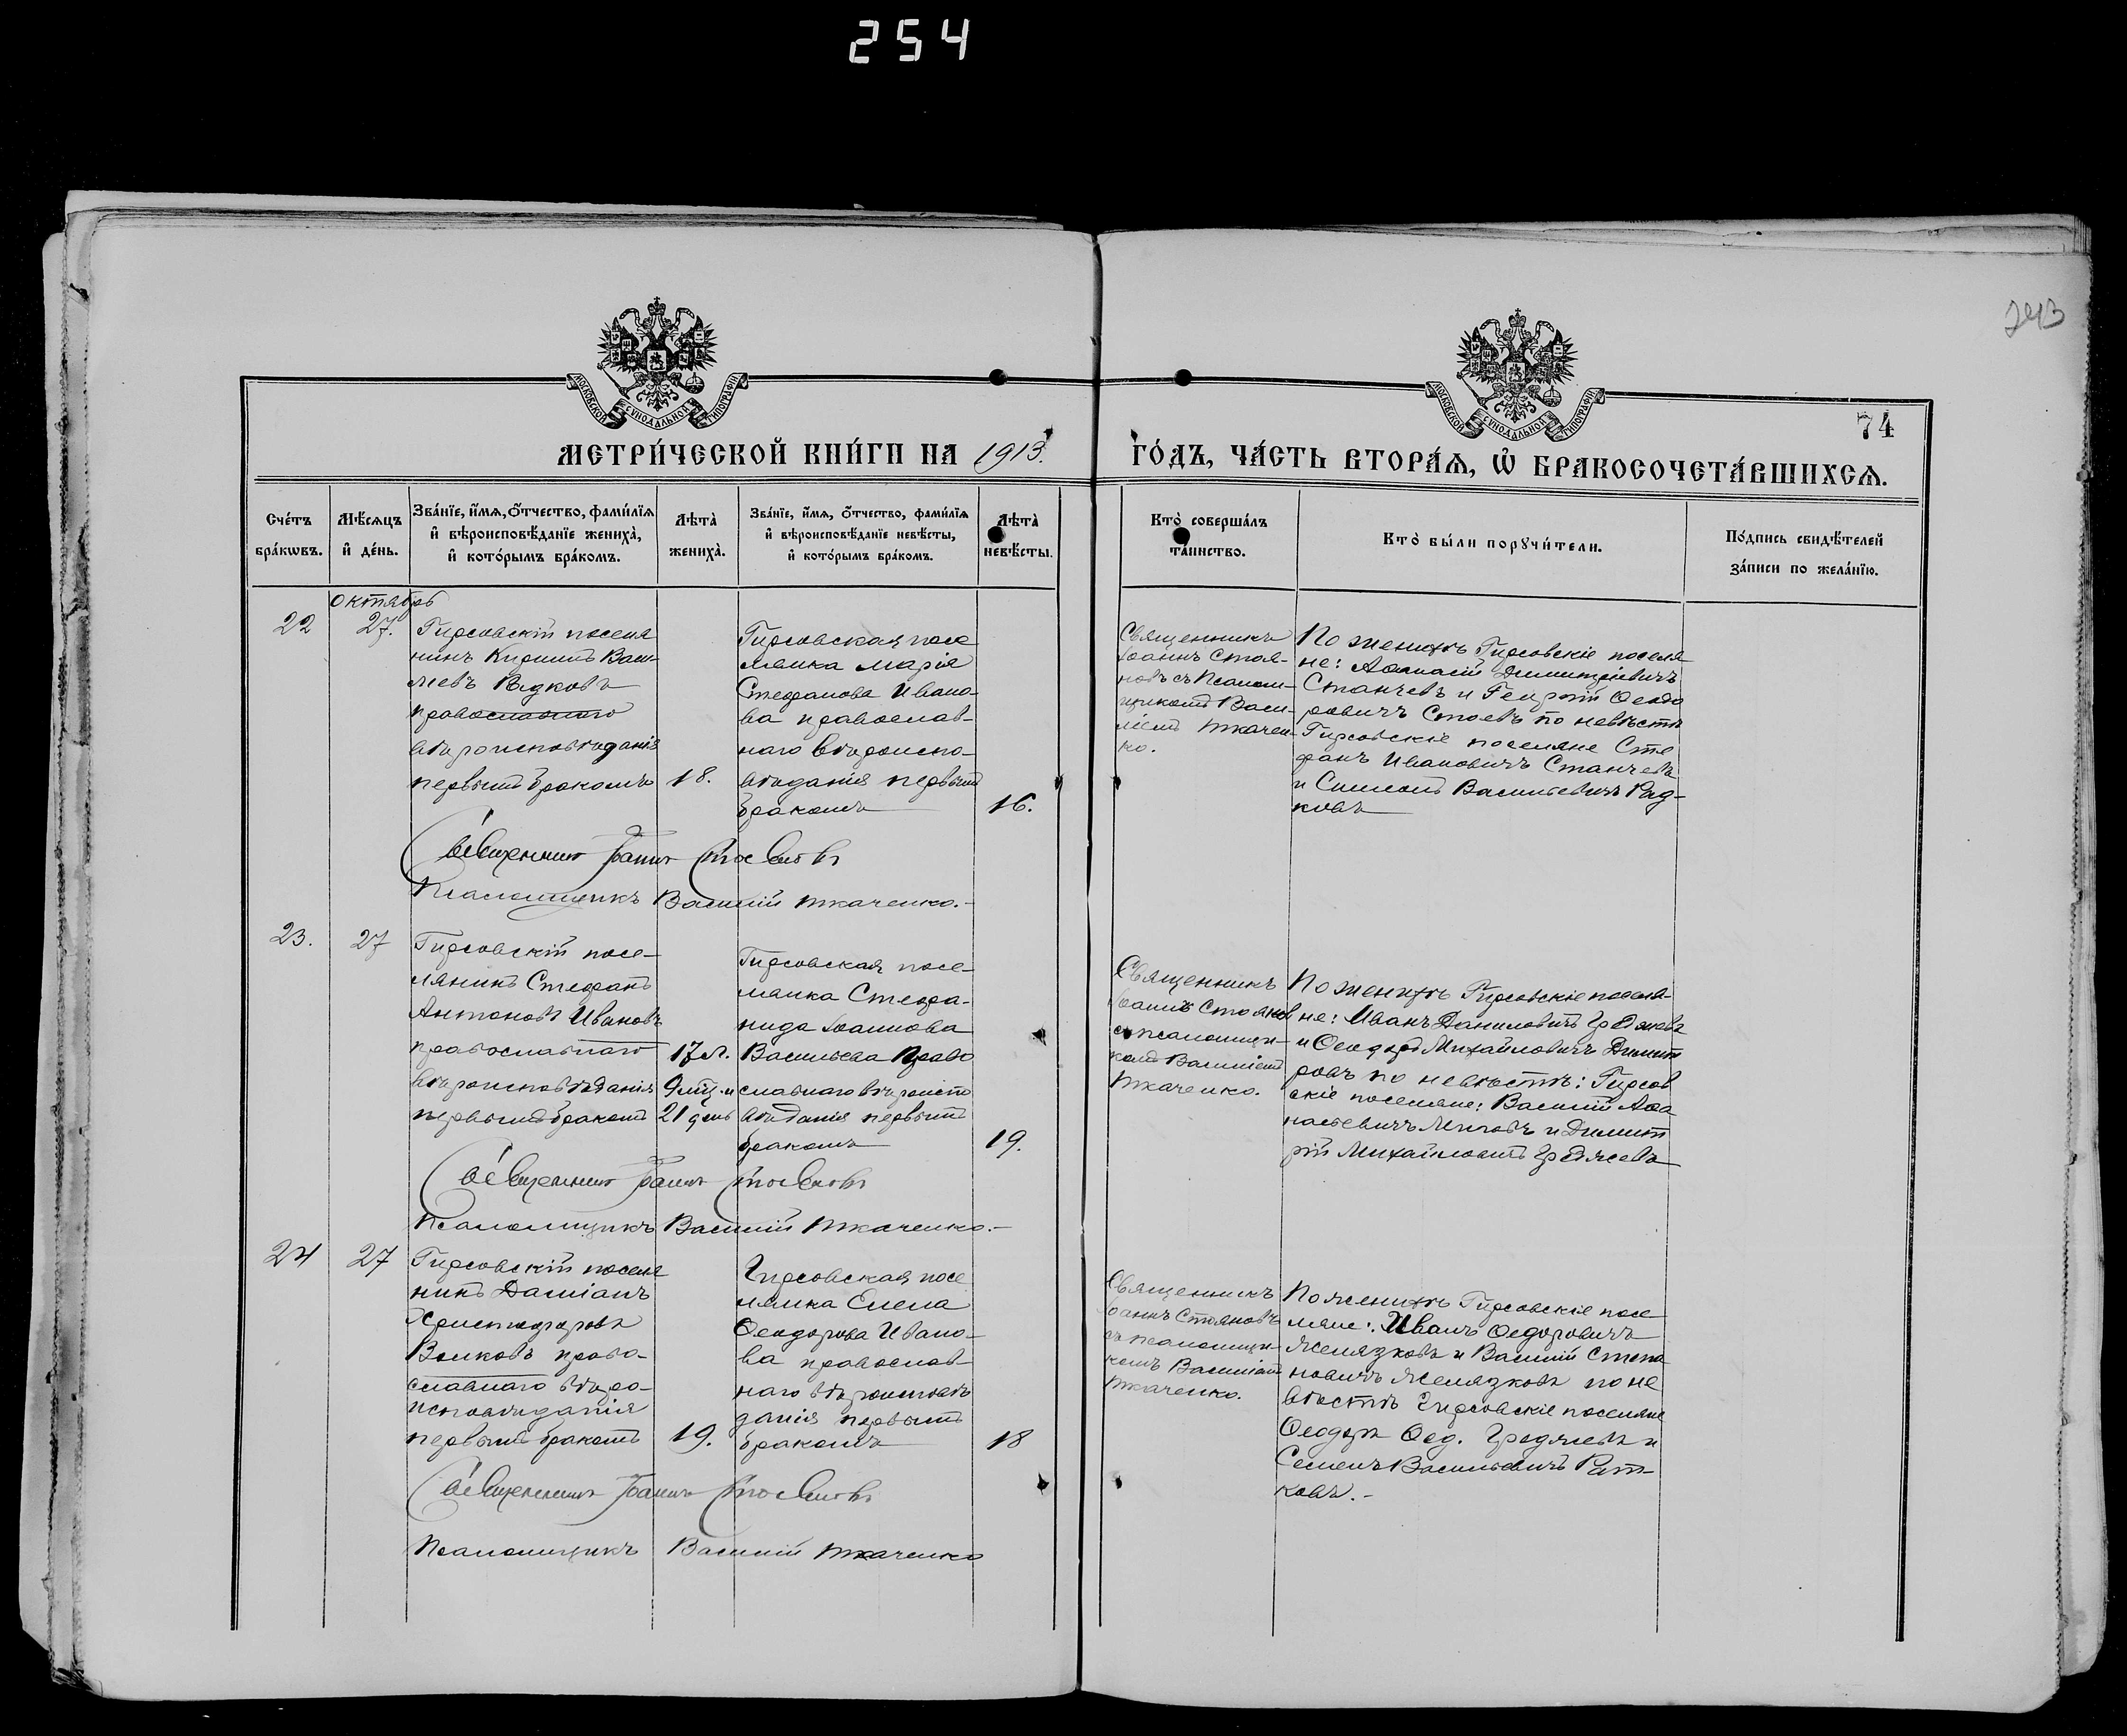 254
243
МОСКОВСКОЙ СѴНОДАЛЬНОЙ ТИПОГРАФІИ
МОСКОВСКОЙ СѴНОДАЛЬНОЙ ТИПОГРАФІИ
74
МЕТРИ́ЧЕСКОЙ КНИ́ГИ НА 1913.
ГО́ДЪ, ЧА́СТЬ ВТОРА́Ѧ, Ѽ БРАКОСОЧЕТА́ВШИХСѦ.
Сче́тъ
бра́кѡвъ.
Мѣ́сѧцъ
и҆ де́нь.
Зва́нїе, и҆́мѧ, ѻ҆́тчество, фами́лїѧ
и҆ вѣроисповѣ́данїе жениха̀,
и҆ кото́рымъ бра́комъ.
Лѣ́та̀
жениха̀.
Зва́нїе, и҆́мѧ, ѻ҆́тчество, фами́лїѧ
и҆ вѣроисповѣ́данїе невѣ́сты,
и҆ кото́рымъ бра́комъ.
Лѣ́та̀
невѣ́сты.
Кто̀ соверша́лъ
та́инство.
Кто̀ бы́ли порꙋчи́тели.
По́дпись свидѣ́телей
за́писи по жела́нїю.
Октябрь
22
27.
Гирсовскій поселя
нинъ Кириллъ Васи-
ліевъ Радковъ
православнаго
вѣроисповѣданія
первымъ бракомъ
18.
Гирсовская посе
лянка Марія
Стефанова Ивано-
ва православ-
наго вѣроиспо-
вѣданія первымъ
бракомъ
16.
Священникъ
Іоаннъ Стоя-
новъ съ Псалом-
щикомъ Васи-
ліемъ Ткачен-
ко.
По женихѣ Гирсовскіе поселя
не: Аѳанасій Димитріевичъ
Станчевъ и Георгій Ѳеодо
ровичъ Стоевъ по невѣстѣ
Гирсовскіе поселяне Сте
фанъ Ивановичъ Станчевъ
и Симеонъ Васильевичъ Рад-
ковъ
Священникъ Іоаннъ Стояновъ
Псаломщикъ Василій Ткаченко.-
23.
27
Гирсовскій посе-
лянинъ Стефанъ
Антоновъ Ивановъ
православнаго
вѣроисповѣданія
первымъ бракомъ
17 л.
9 мѣц. и
21 день
Гирсовская посе-
лянка Стефа-
нида Іоаннова
Васильева Право
славнаго вѣроиспо
вѣданія первымъ
бракомъ
19.
Священникъ
Іоаннъ Стояновъ
съ псаломщи-
комъ Василіемъ
Ткаченко.
По женихѣ Гирсовскіе поселя-
не: Иванъ Даниловичъ
и Ѳеодоръ Михайловичъ Димит
ровъ по невѣстѣ: Гирсов
скіе поселяне: Василій Аѳа
насьевичъ и Димит
рій Михайловичъ
Священникъ Іоаннъ Стояновъ
Псаломщикъ Василій Ткаченко.-
24
27
Гирсовскій поселя
нинъ Даміанъ
Христофоровъ
Волковъ право-
славнаго вѣро-
исповѣданія
первымъ бракомъ
19.
Гирсовская посе
лянка Елена
Ѳеодорова Ивано-
ва православ-
наго вѣроисповѣ
данія первымъ
бракомъ
18
Священникъ
Іоаннъ Стояновъ
съ псаломщи-
комъ Василіемъ
Ткаченко.
По женихѣ Гирсовскіе посе
ляне: Иванъ Ѳедоровичъ
Желязковъ и Василій Степа
новичъ Желязковъ по не
вѣстѣ Гирсовскіе поселяне
Ѳеодоръ Ѳед. и
Семенъ Васильевичъ Рат-
ковъ.-
Священникъ Іоаннъ Стояновъ
Псаломщикъ Василій Ткаченко